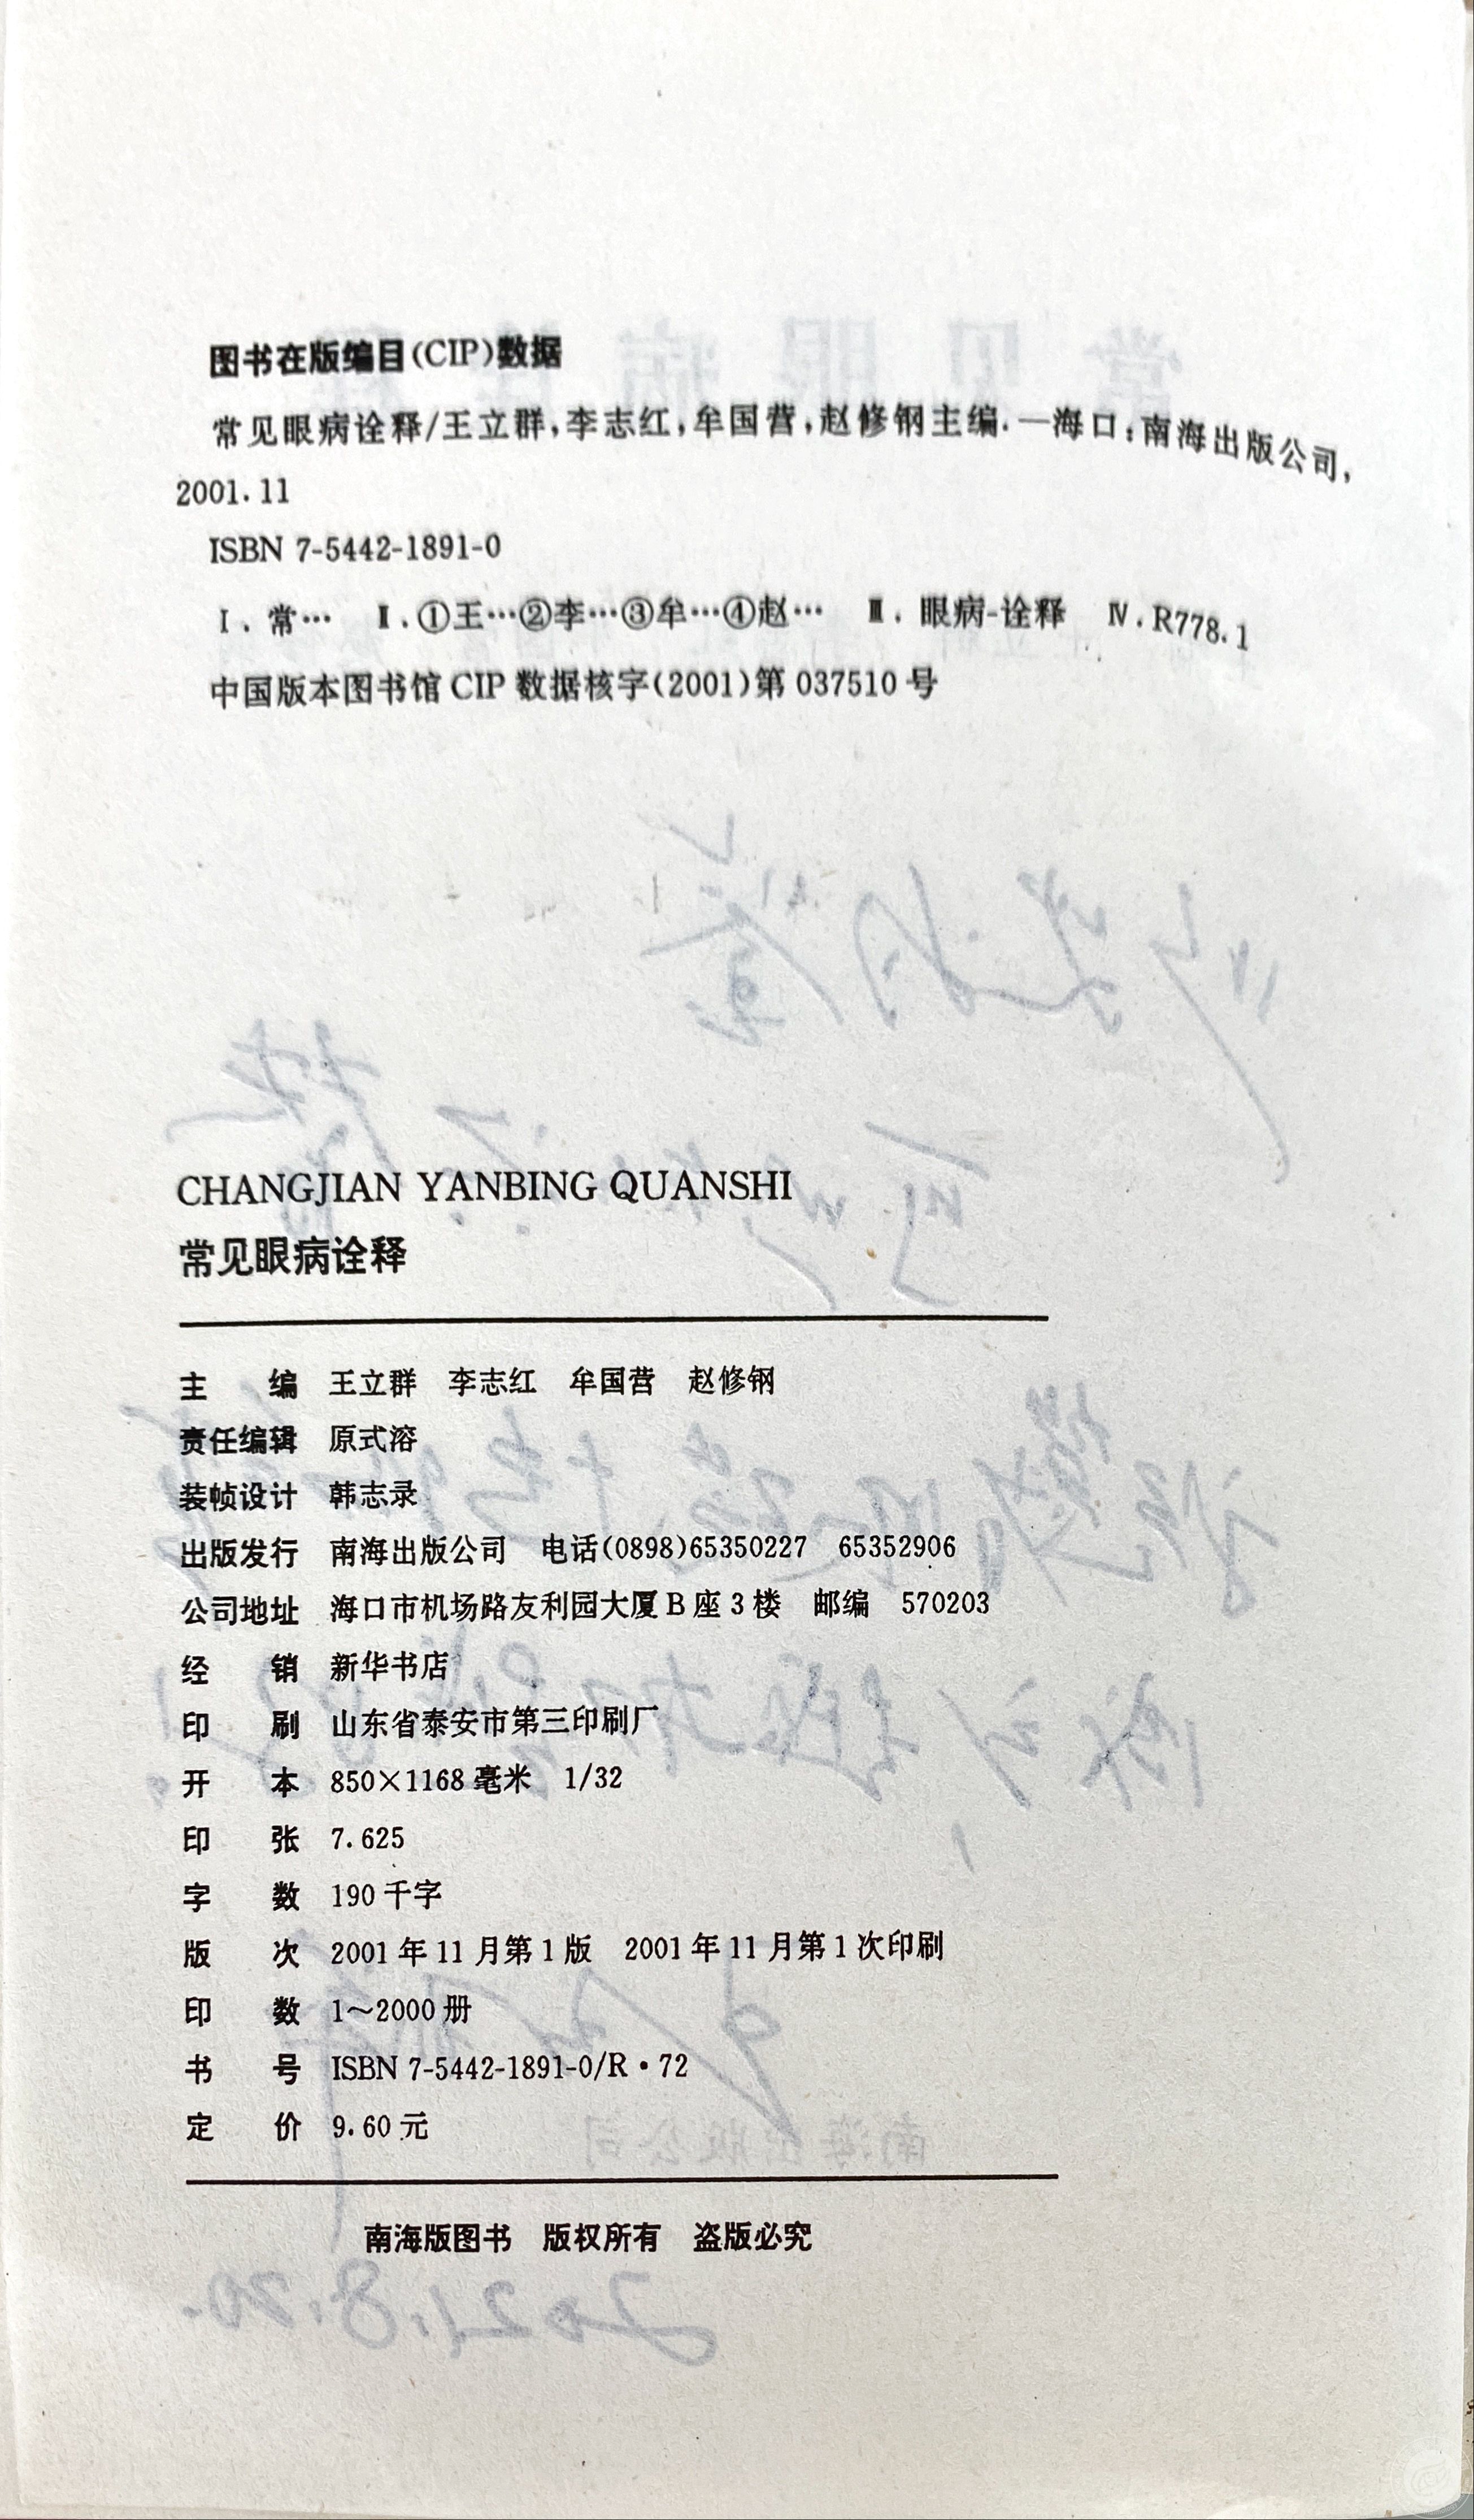 图书在版编目(CIP)数据
常见眼病诠释/王立群,李志红,牟国营,赵修钢主编.—海口:南海出版公司,
2001.11
ISBN 7-5442-1891-0
Ⅰ.常… Ⅱ.①王…②李…③牟…④赵… Ⅲ.眼病-诠释 Ⅳ.R778.1
中国版本图书馆CIP数据核字(2001)第037510号
CHANGJIAN YANBING QUANSHI
常见眼病诠释
主 编 王立群 李志红 牟国营 赵修钢
责任编辑 原式溶
装帧设计 韩志录
出版发行 南海出版公司 电话(0898)65350227 65352906
公司地址 海口市机场路友利园大厦B座3楼 邮编 570203
经 销 新华书店
印 刷 山东省泰安市第三印刷厂
开 本 850×1168毫米 1/32
印 张 7.625
字 数 190千字
版 次 2001年11月第1版 2001年11月第1次印刷
印 数 1～2000册
书 号 ISBN 7-5442-1891-0/R·72
定 价 9.60元
南海出版公司
南海版图书 版权所有 盗版必究
2021.8.20.